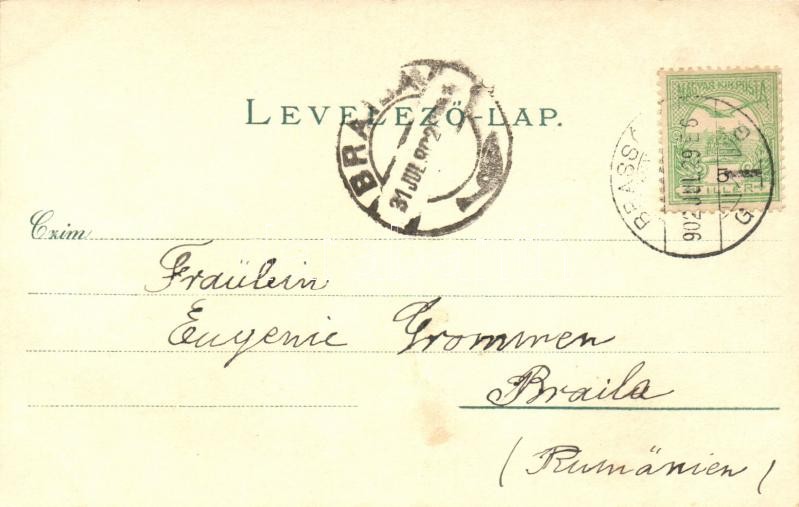 LEVELEZŐ-LAP.
MAGYAR KIR. POSTA
5
FILLÉR
BRAILA
31 JUL 902
902 JUL 29 E6
Czim
Fräulein
Eugenie Grommen
Braila
(Rumänien)